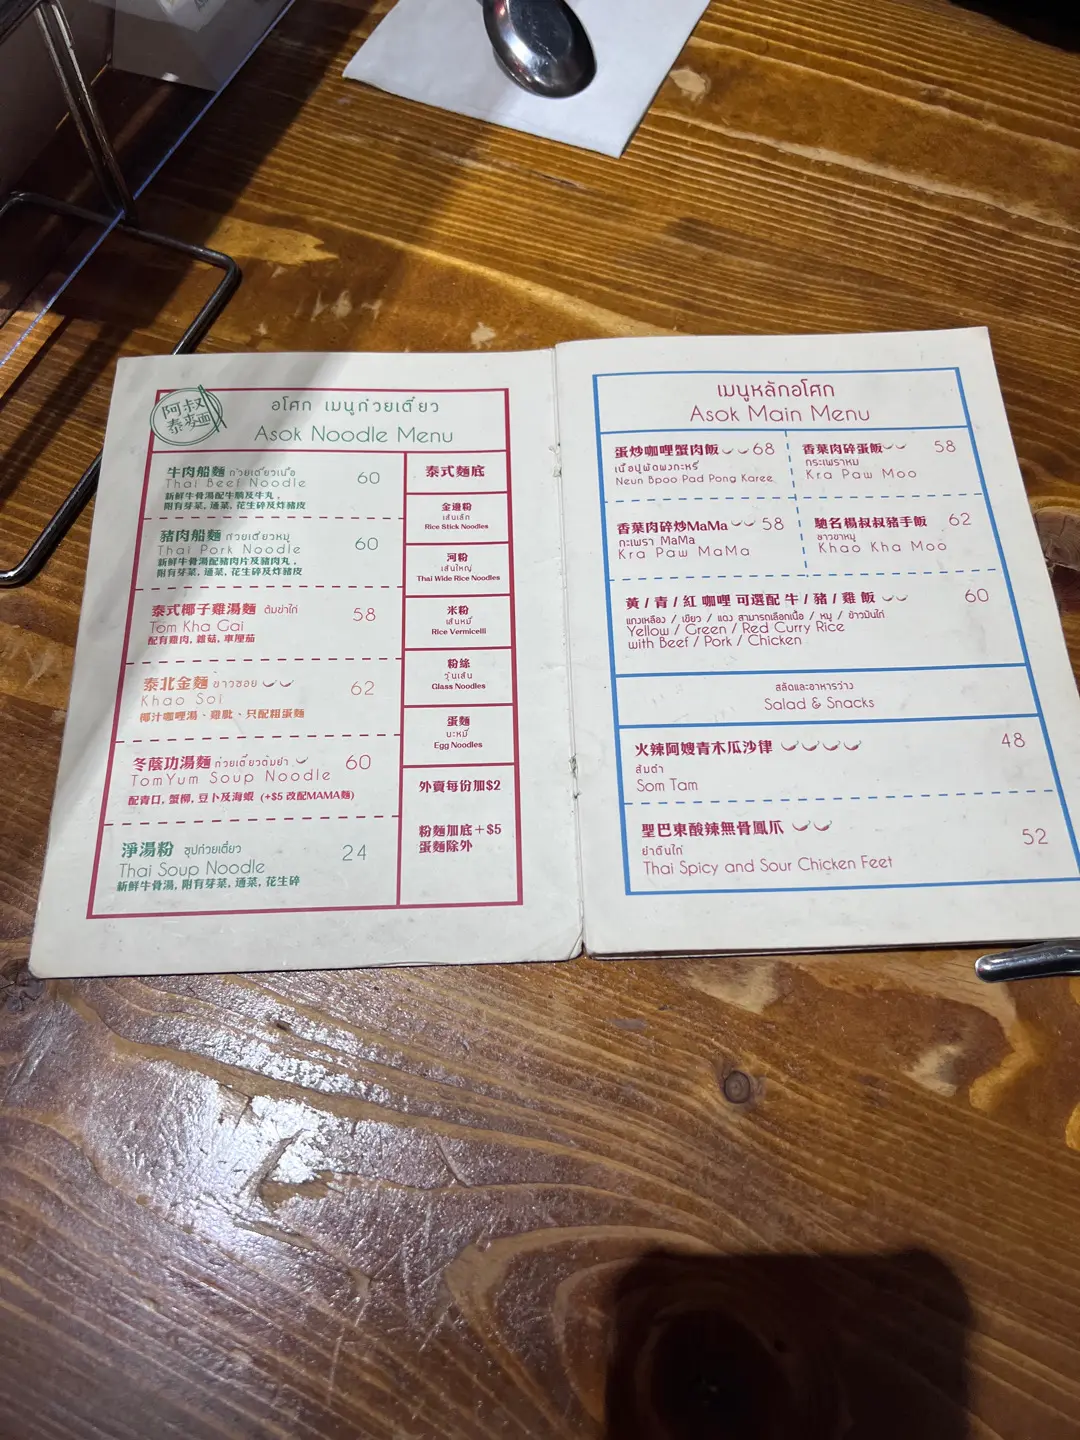 阿叔
泰麥面
อโศก เมนูก๋วยเตี๋ยว
Asok Noodle Menu
牛肉船麵 ก๋วยเตี๋ยวเนื้อ 60
Thai Beef Noodle
新鮮牛骨湯配牛腩及牛丸,
附有芽菜, 通菜, 花生碎及炸豬皮
豬肉船麵 ก๋วยเตี๋ยวหมู 60
Thai Pork Noodle
新鮮牛骨湯配豬肉片及豬肉丸,
附有芽菜, 通菜, 花生碎及炸豬皮
泰式椰子雞湯麵 ต้มข่าไก่ 58
Tom Kha Gai
配有雞肉, 雜菇, 車厘茄
泰北金麵 ข้าวซอย 62
Khao Soi
椰汁咖哩湯、雞髀、只配粗蛋麵
冬蔭功湯麵 ก๋วยเตี๋ยวต้มยำ 60
TomYum Soup Noodle
配青口, 蟹柳, 豆卜及海蝦 (+$5 改配MAMA麵)
淨湯粉 ซุปก๋วยเตี๋ยว 24
Thai Soup Noodle
新鮮牛骨湯, 附有芽菜, 通菜, 花生碎
泰式麵底
金邊粉
เส้นเล็ก
Rice Stick Noodles
河粉
เส้นใหญ่
Thai Wide Rice Noodles
米粉
เส้นหมี่
Rice Vermicelli
粉絲
วุ้นเส้น
Glass Noodles
蛋麵
บะหมี่
Egg Noodles
外賣每份加$2
粉麵加底+$5
蛋麵除外
เมนูหลักอโศก
Asok Main Menu
蛋炒咖哩蟹肉飯 68
เนื้อปูผัดผงกะหรี่
Neun Bpoo Pad Pong Karee
香葉肉碎蛋飯 58
กระเพราหมู
Kra Paw Moo
香葉肉碎炒MaMa 58
กะเพรา MaMa
Kra Paw MaMa
馳名楊叔叔豬手飯 62
ข้าวขาหมู
Khao Kha Moo
黃 / 青 / 紅 咖哩 可選配 牛 / 豬 / 雞 飯 60
แกงเหลือง / เขียว / แดง สามารถเลือกเนื้อ / หมู / ข้าวมันไก่
Yellow / Green / Red Curry Rice
with Beef / Pork / Chicken
สลัดและอาหารว่าง
Salad & Snacks
火辣阿嫂青木瓜沙律 48
ส้มตำ
Som Tam
聖巴東酸辣無骨鳳爪 52
ยำตีนไก่
Thai Spicy and Sour Chicken Feet